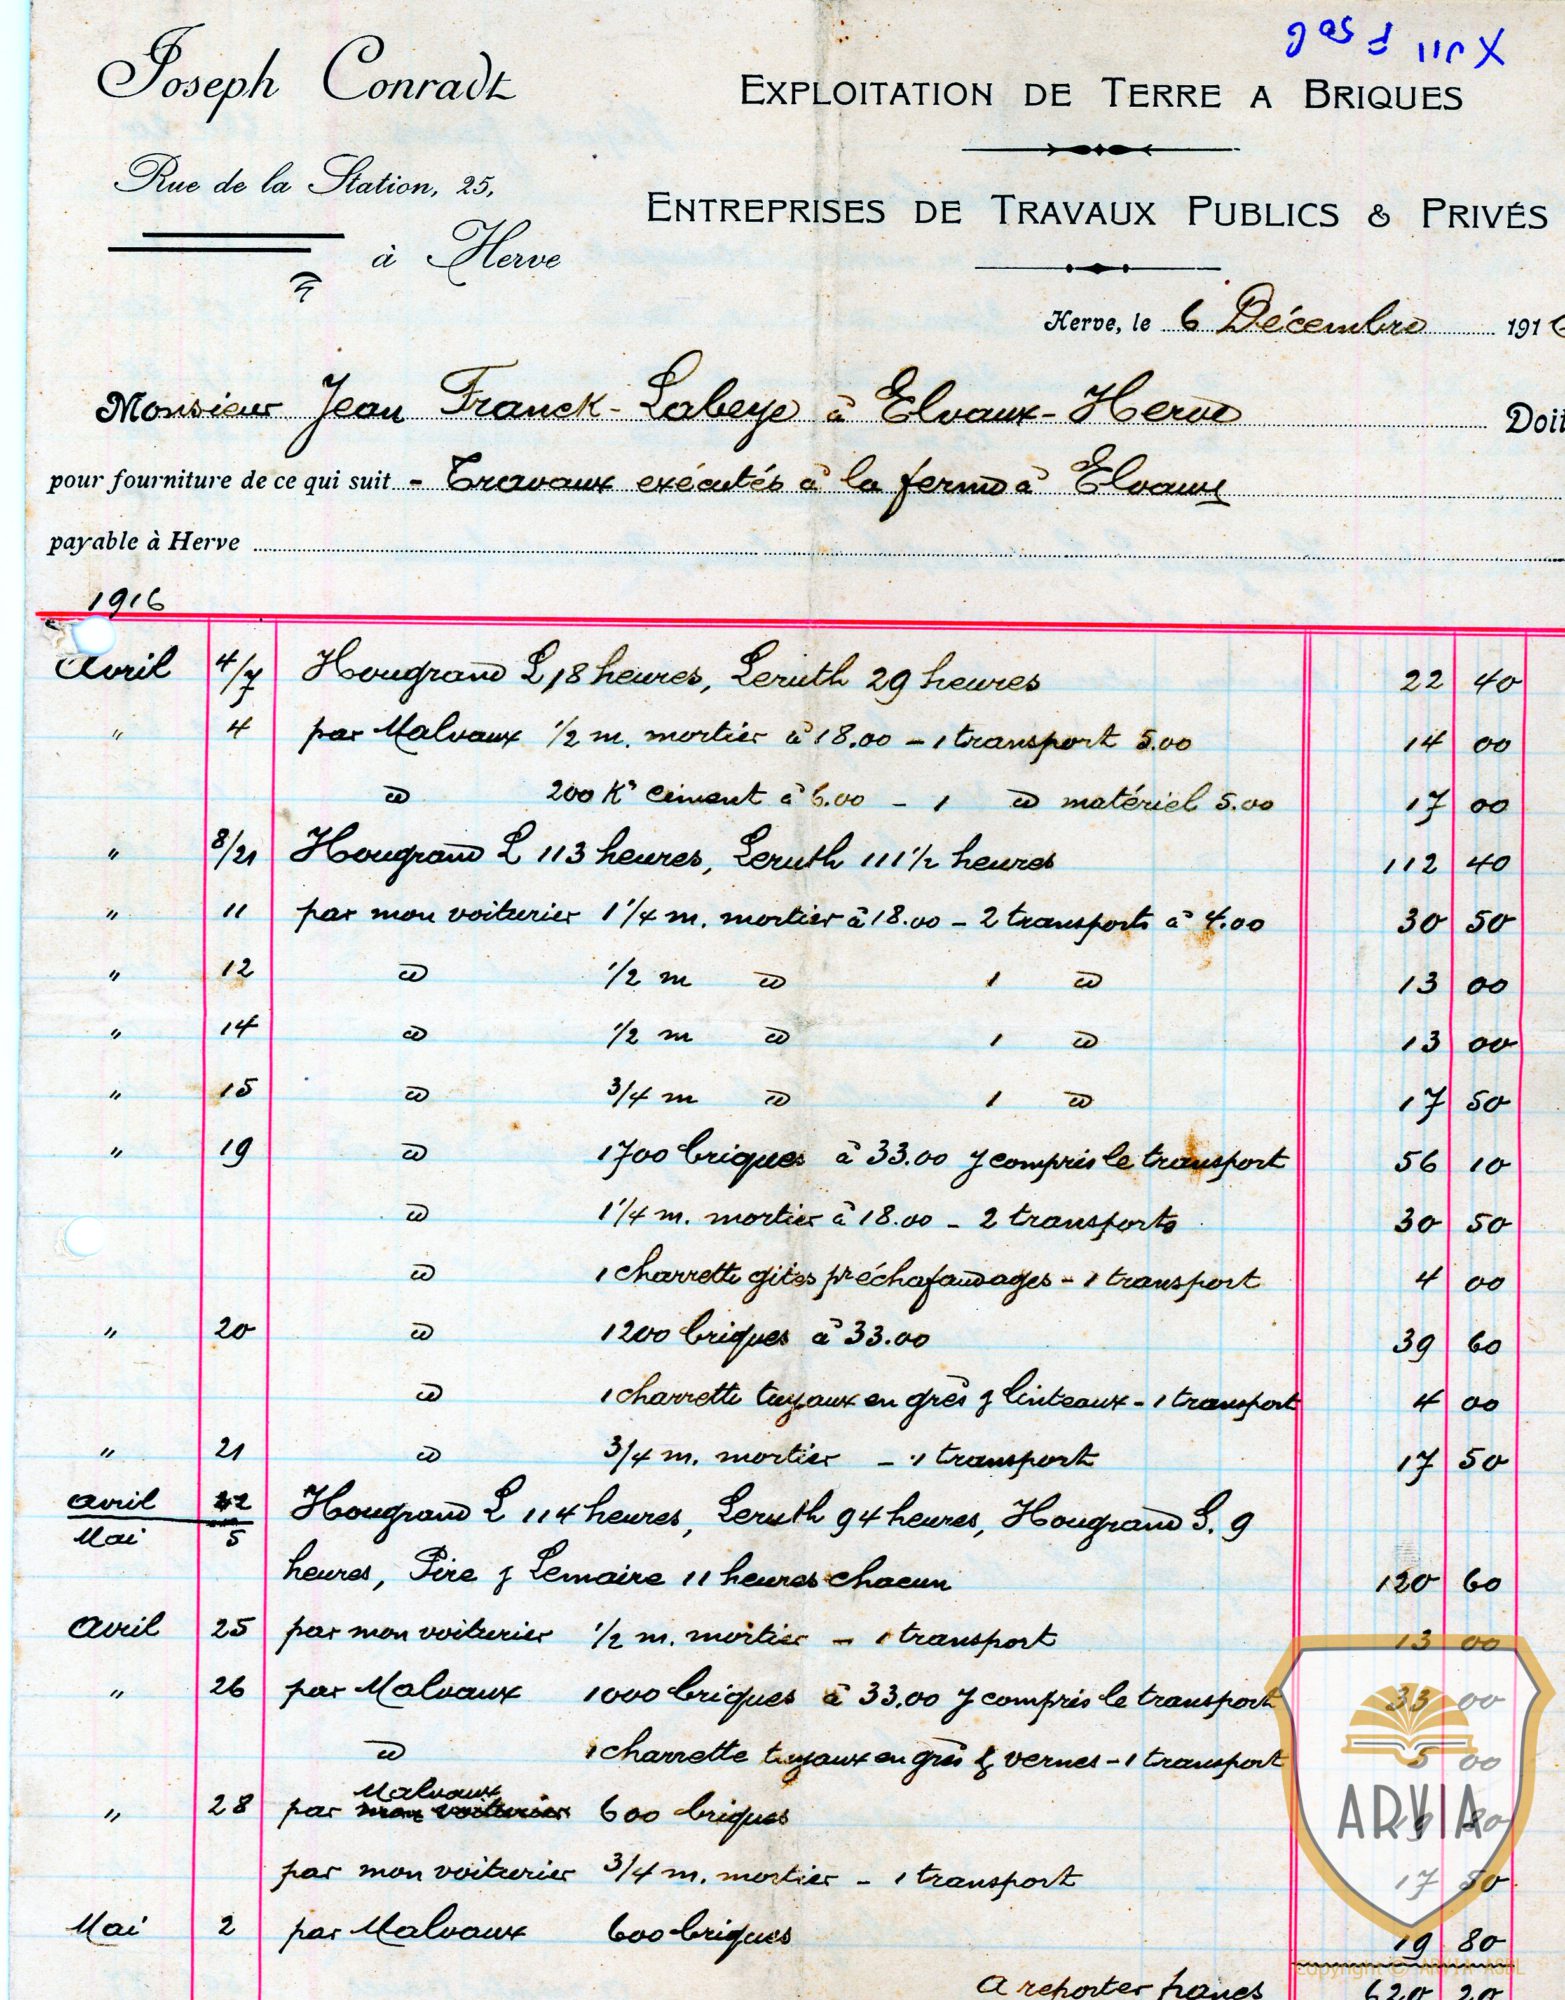 Joseph Conradt
EXPLOITATION DE TERRE A BRIQUES
Rue de la Station, 25,
à Herve
ENTREPRISES DE TRAVAUX PUBLICS & PRIVÉS
Herve, le 6 Décembre 1916
Monsieur Jean Franck-Labeye à Elvaux-Herve Doit
pour fourniture de ce qui suit - Travaux exécutés à la ferme à Elvaux
payable à Herve
1916
Avril 4/7 Hougrand L 18 heures, Leruth 29 heures 22 40
" 4 par Malvaux 1/2 m. mortier à 18.00 - 1 transport 5.00 14 00
id 200 K° ciment à 6.00 - 1 id matériel 5.00 17 00
" 8/21 Hougrand L 113 heures, Leruth 111 1/2 heures 112 40
" 11 par mon voiturier 1 1/4 m. mortier à 18.00 - 2 transports à 4.00 30 50
" 12 id 1/2 m id 1 id 13 00
" 14 id 1/2 m id 1 id 13 00
" 15 id 3/4 m id 1 id 17 50
" 19 id 1700 briques à 33.00 y compris le transport 56 10
id 1 1/4 m. mortier à 18.00 - 2 transports 30 50
id 1 charrette gites pr échafaudages - 1 transport 4 00
" 20 id 1200 briques à 33.00 39 60
id 1 charrette tuyaux en grès & linteaux - 1 transport 4 00
" 21 id 3/4 m. mortier - 1 transport 17 50
Avril 22 Hougrand L 114 heures, Leruth 94 heures, Hougrand S. 9
Mai 5
heures, Pire & Lemaire 11 heures chacun 120 60
Avril 25 par mon voiturier 1/2 m. mortier - 1 transport 13 00
" 26 par Malvaux 1000 briques à 33.00 y compris le transport 33 00
id 1 charrette tuyaux en grès & vernes - 1 transport 5 00
Malvaux
" 28 par mon voiturier 600 briques 19 80
par mon voiturier 3/4 m. mortier - 1 transport 17 50
Mai 2 par Malvaux 600 briques 19 80
A reporter francs 620 20
ARVIA